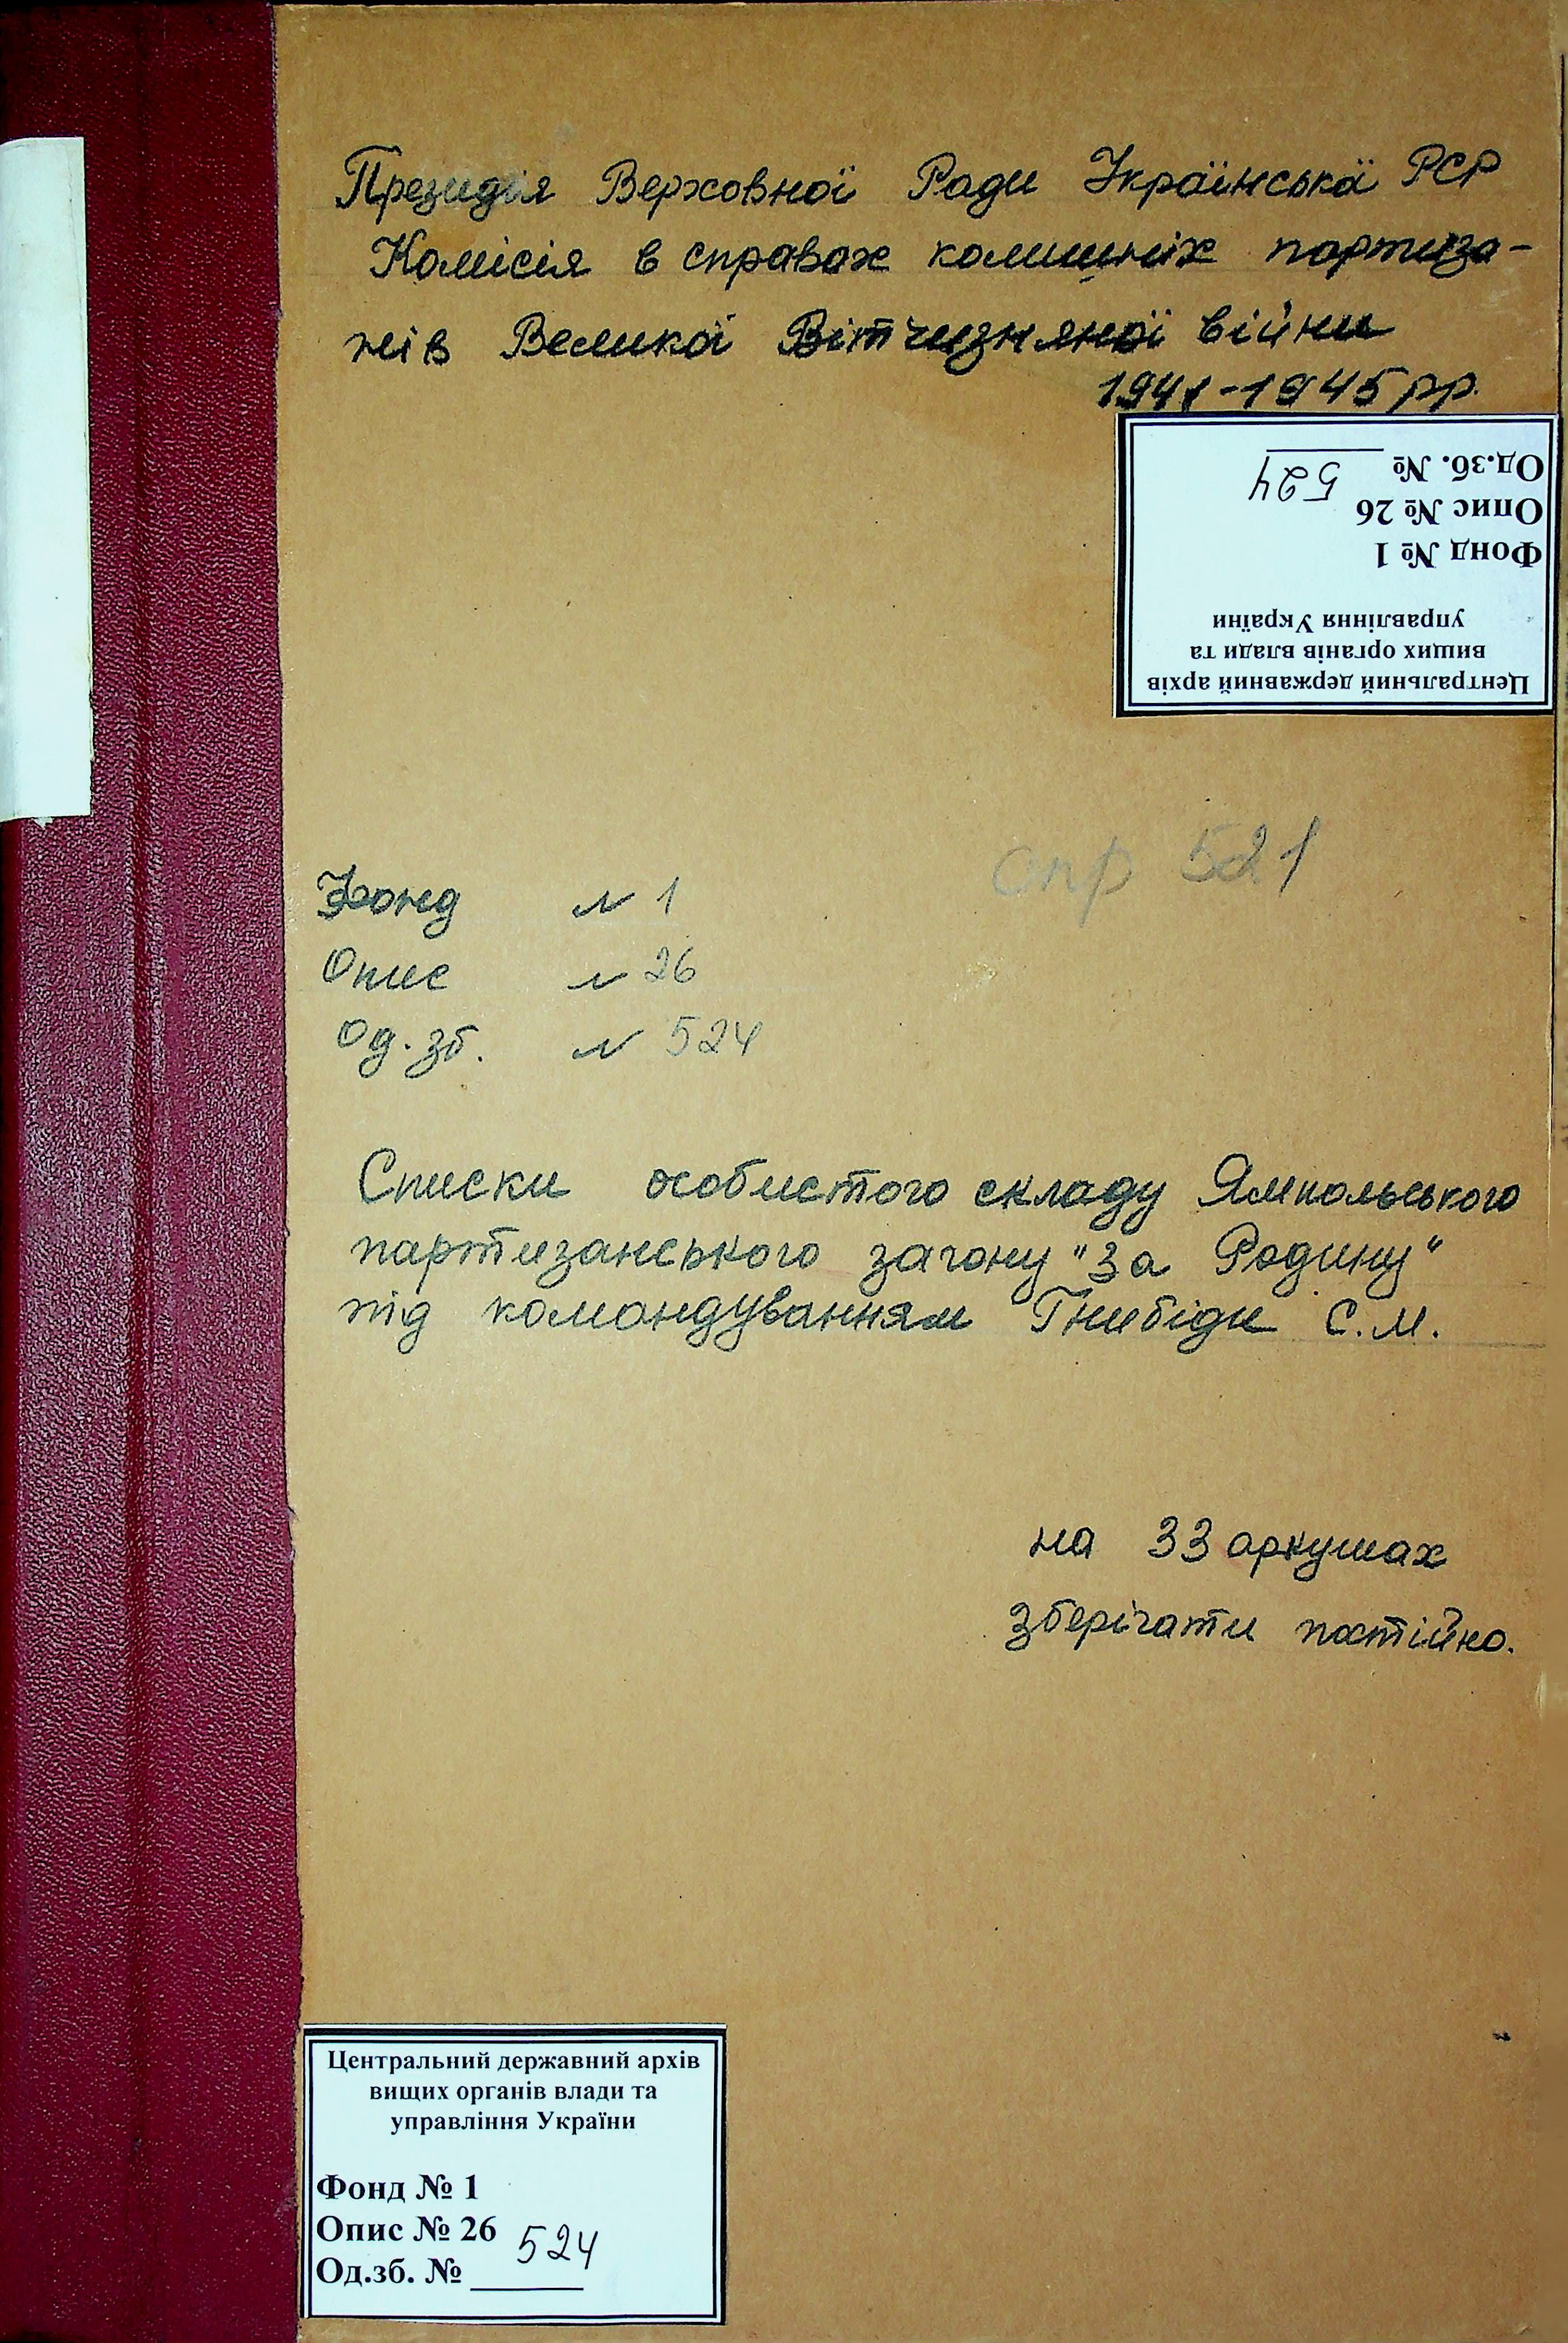 Президія Верховної Ради Українська РСР
Комісія в справах колишніх партиза-
нів Великої Вітчизняної війни
1941-1945 рр.
Центральний державний архів
вищих органів влади та
управління України
Фонд № 1
Опис № 26
Од.зб. № 524
спр 521
Фонд № 1
Опис № 26
Од. зб. № 524
Списки особистого складу Ямпольського
партизанського загону "За Родину"
під командуванням Гнибіди С.М.
на 33 аркушах
зберігати постійно.
Центральний державний архів
вищих органів влади та
управління України
Фонд № 1
Опис № 26
Од.зб. № 524